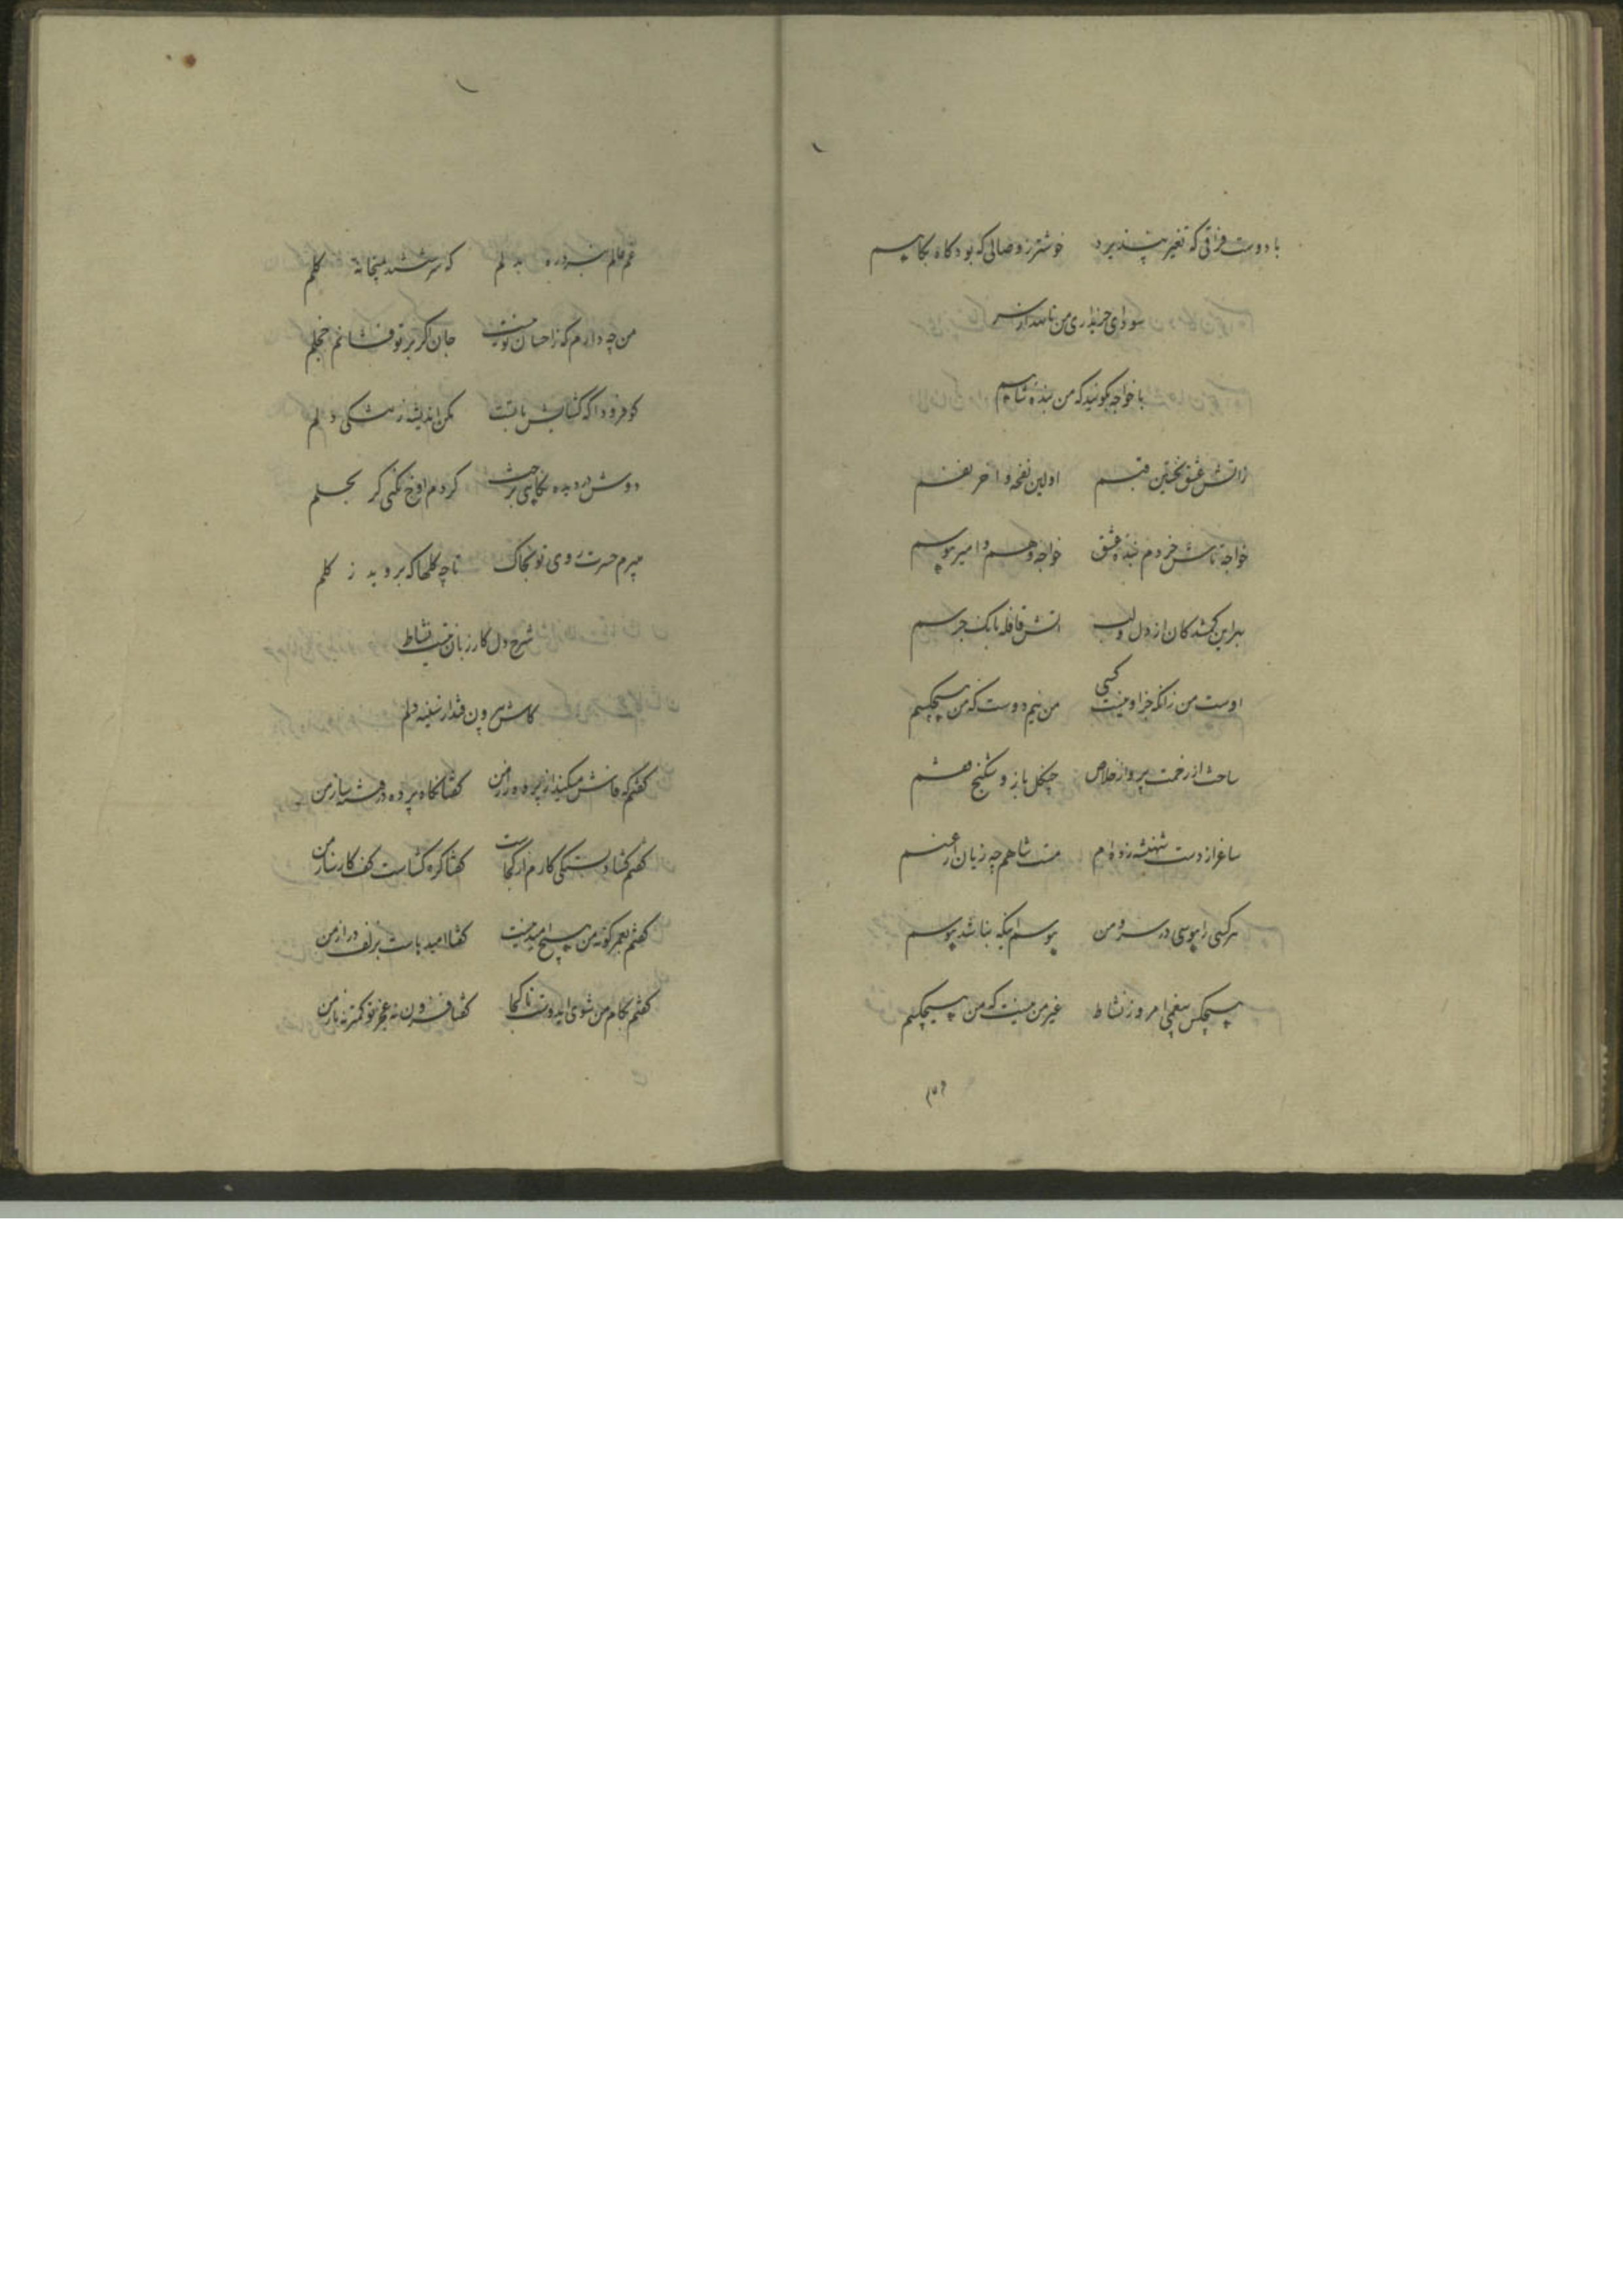 با دوست فراقی که تغیر نپذیرد خوشتر ز وصالی که بود گاه بگاهیم
سودای خریداری من تا نبد از سر
با خواجه بگوئید که من بنده شاهیم
ز آتش عشق نخستین قبسم اولین نفخه و آخر نفسم
خواجه تاش خردم بنده عشق خواجه وهم و امیر هوسم
بهر این گمشدگان از دل و لب آتش قافله بانک جرسم
اوست من زانکه جز او نیست کسی من نیم دوست که من هیچکسم
ساخت از زحمت پرواز خلاص چنگل باز و شکنج قفسم
ساغر از دست شهنشه زده ام مست شاهم چه زیان از عسسم
هر کسی را هوسی در سر و من هوسم اینکه نباشد هوسم
هیچکس بیغمی امروز نشاط غیر من نیست که من هیچکسم
غم عالم نبرد ره بدلم که سرشتند بمیخانه گلم
من چه دارم که ز احسان تو نیست جان اگر بر تو فشانم خجلم
گو فرود آ که گشایش با تست مکن اندیشه ز تنگی دلم
دوش دزدیده نگاهی بر خت کردم اوخ نکنی گر بحلم
میبرم حسرت روی تو بخاک تا چه گلها که بروید ز گلم
شرح دل کار زبان نیست نشاط
کاش بیرون فتد از سینه دلم
گفتم که فاش میکند از پرده راز من گفتا نگاه پرده در فتنه ساز من
گفتم گشاد بستگی کارم از کجاست گفتا گره گشاست کف کارساز من
گفتم بعمر کوته من هیچ امید نیست گفتا امید باست بزلف دراز من
گفتم بکام من شوی ایدوست تا کجا گفتا فزون نه عجز تو کمتر نه ناز من